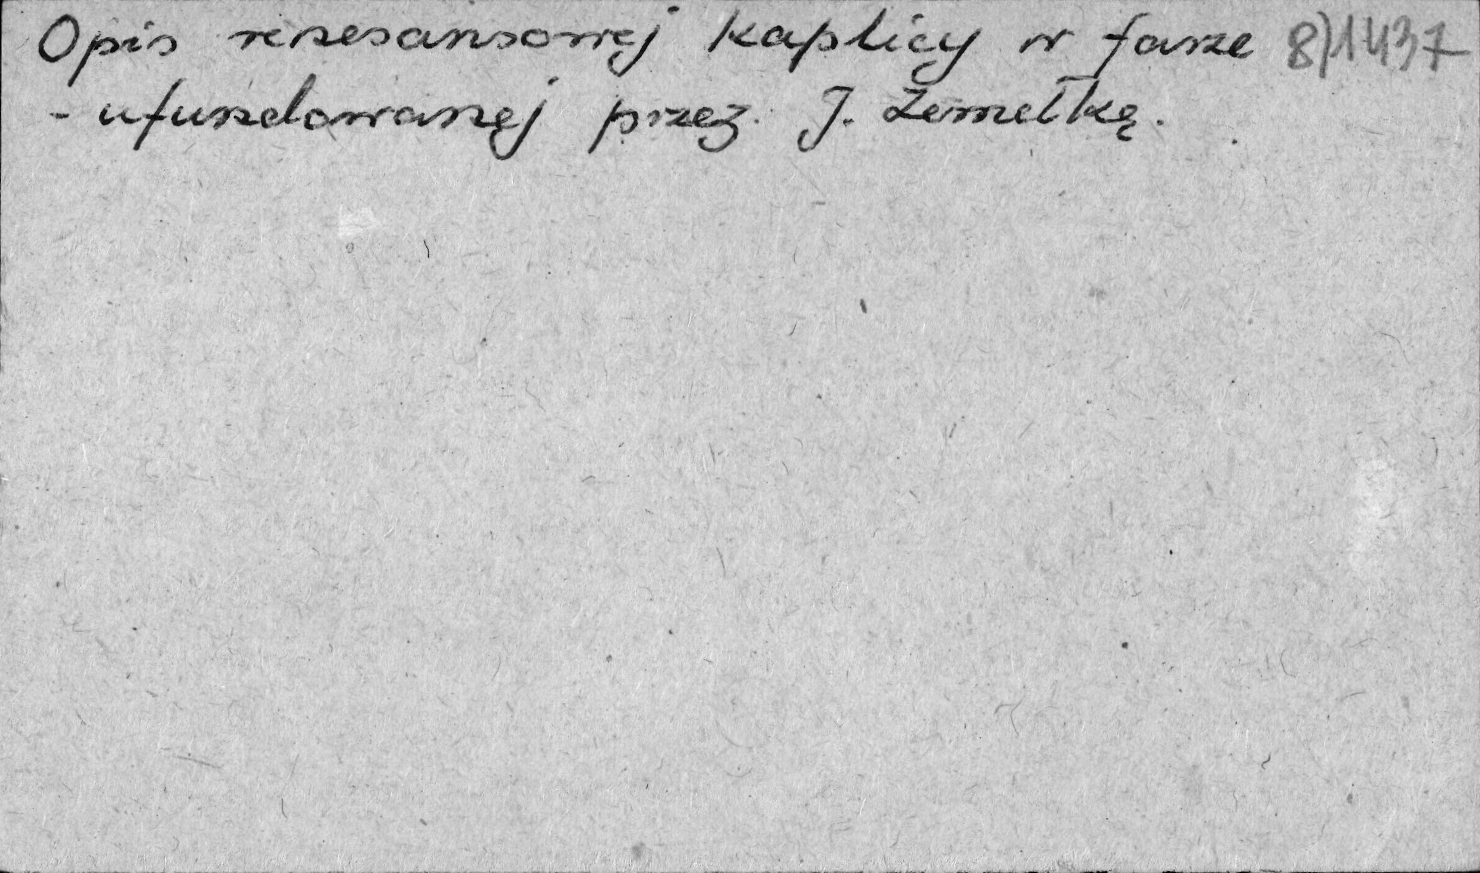 Opis renesansowej kaplicy w farze 8)1437
- ufundowanej przez J. Zemełkę.